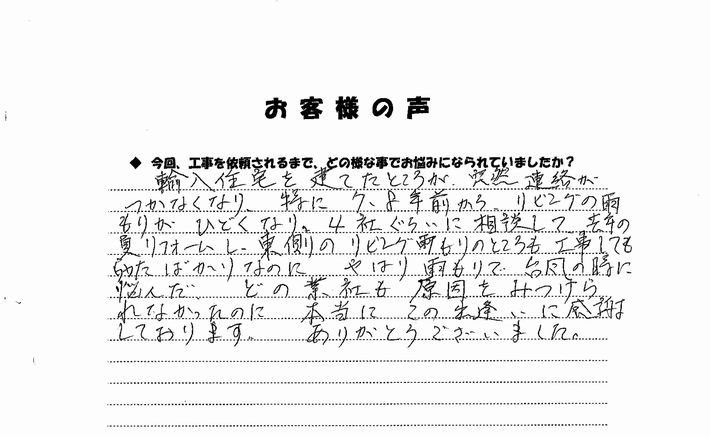 お客様の声
◆ 今回、工事を依頼されるまで、どの様な事でお悩みになられていましたか?
輸入住宅を建てたところが、突然連絡が
つかなくなり、特に7、8年前から、リビングの雨
もりがひどくなり、4社ぐらいに相談して、去年の
夏リフォームし、東側のリビング雨もりのところも工事しても
らったばかりなのに やはり雨もりで、台風の時に
悩んだ、 どの業社も原因をみつけら
れなかったのに 本当にこの出逢いに感謝
しております。 ありがとうございました。